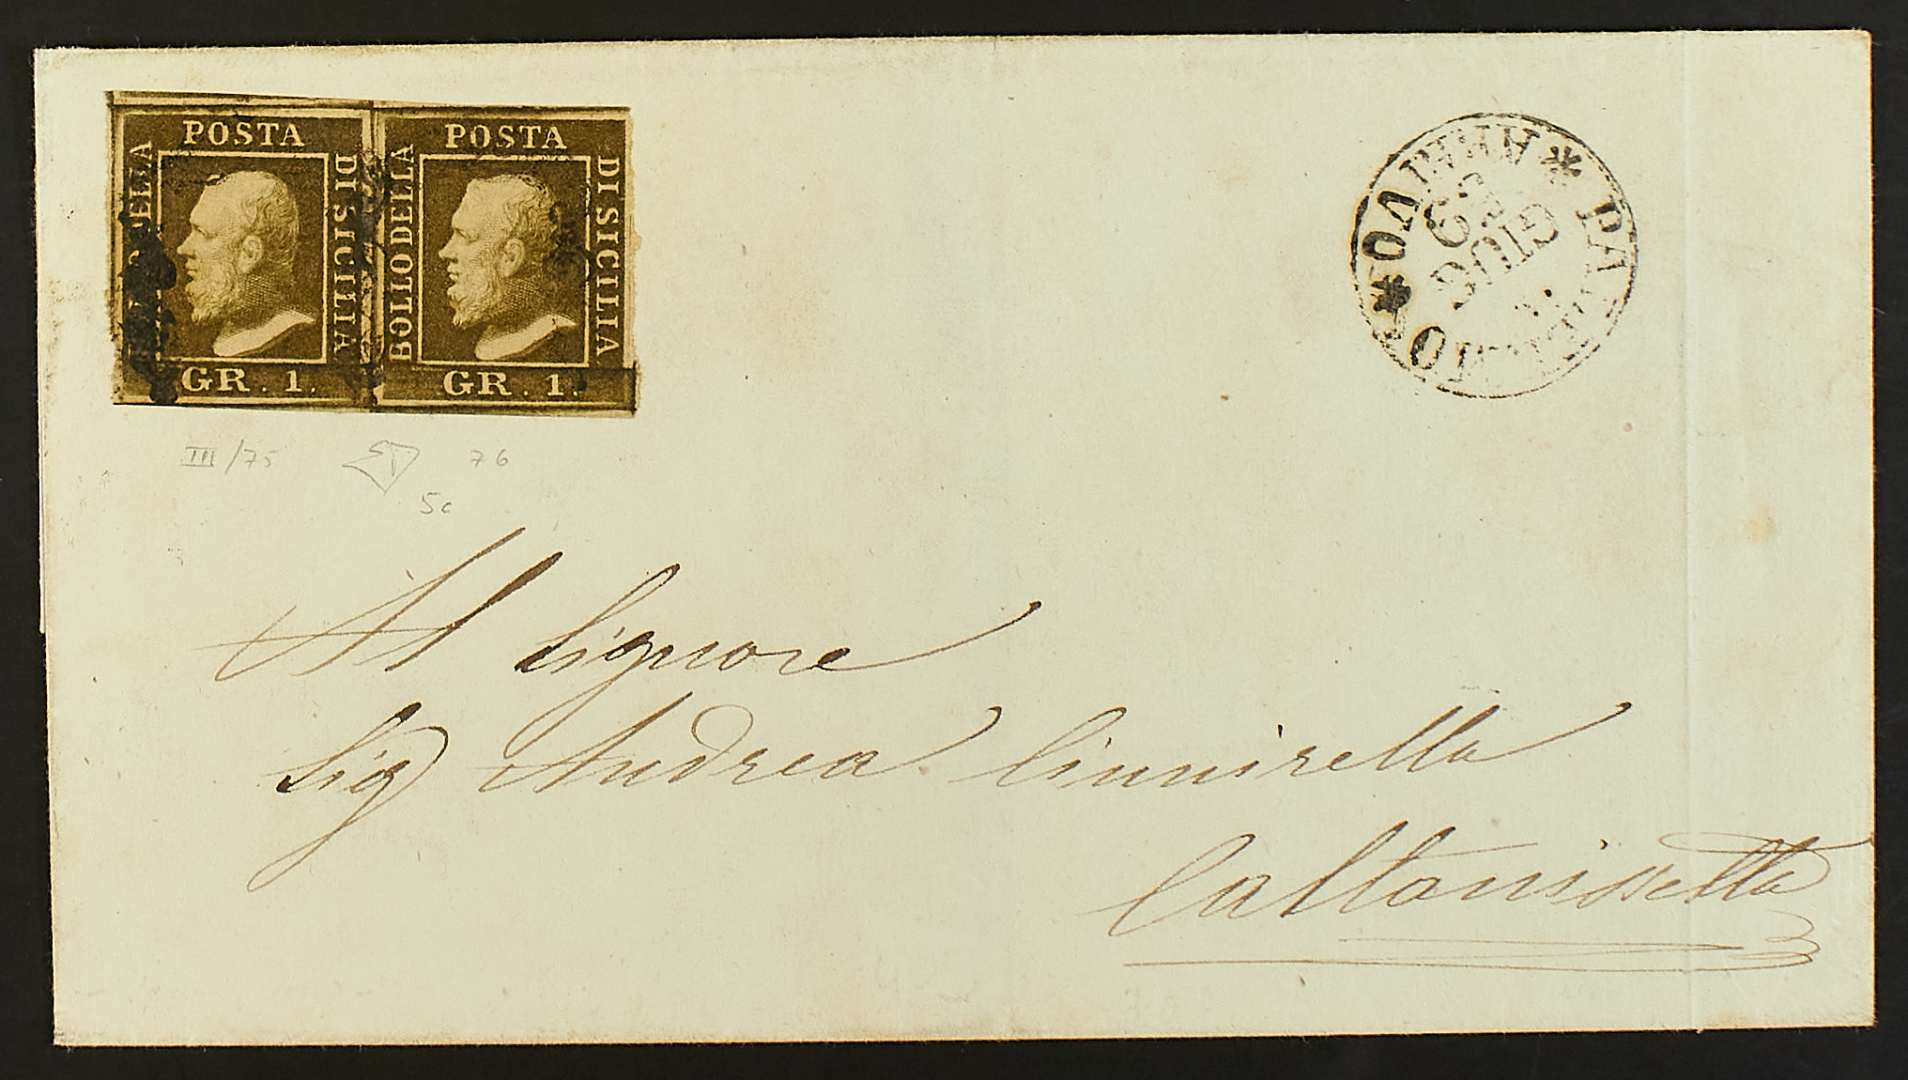 POSTA
BOLLO DELLA
DI SICILIA
GR. 1.
POSTA
BOLLO DELLA
DI SICILIA
GR. 1.
* PALERMO * ARRIVO
GIUG
III/75
76
5c
Al Signore
Sig Andrea
Caltanissetta